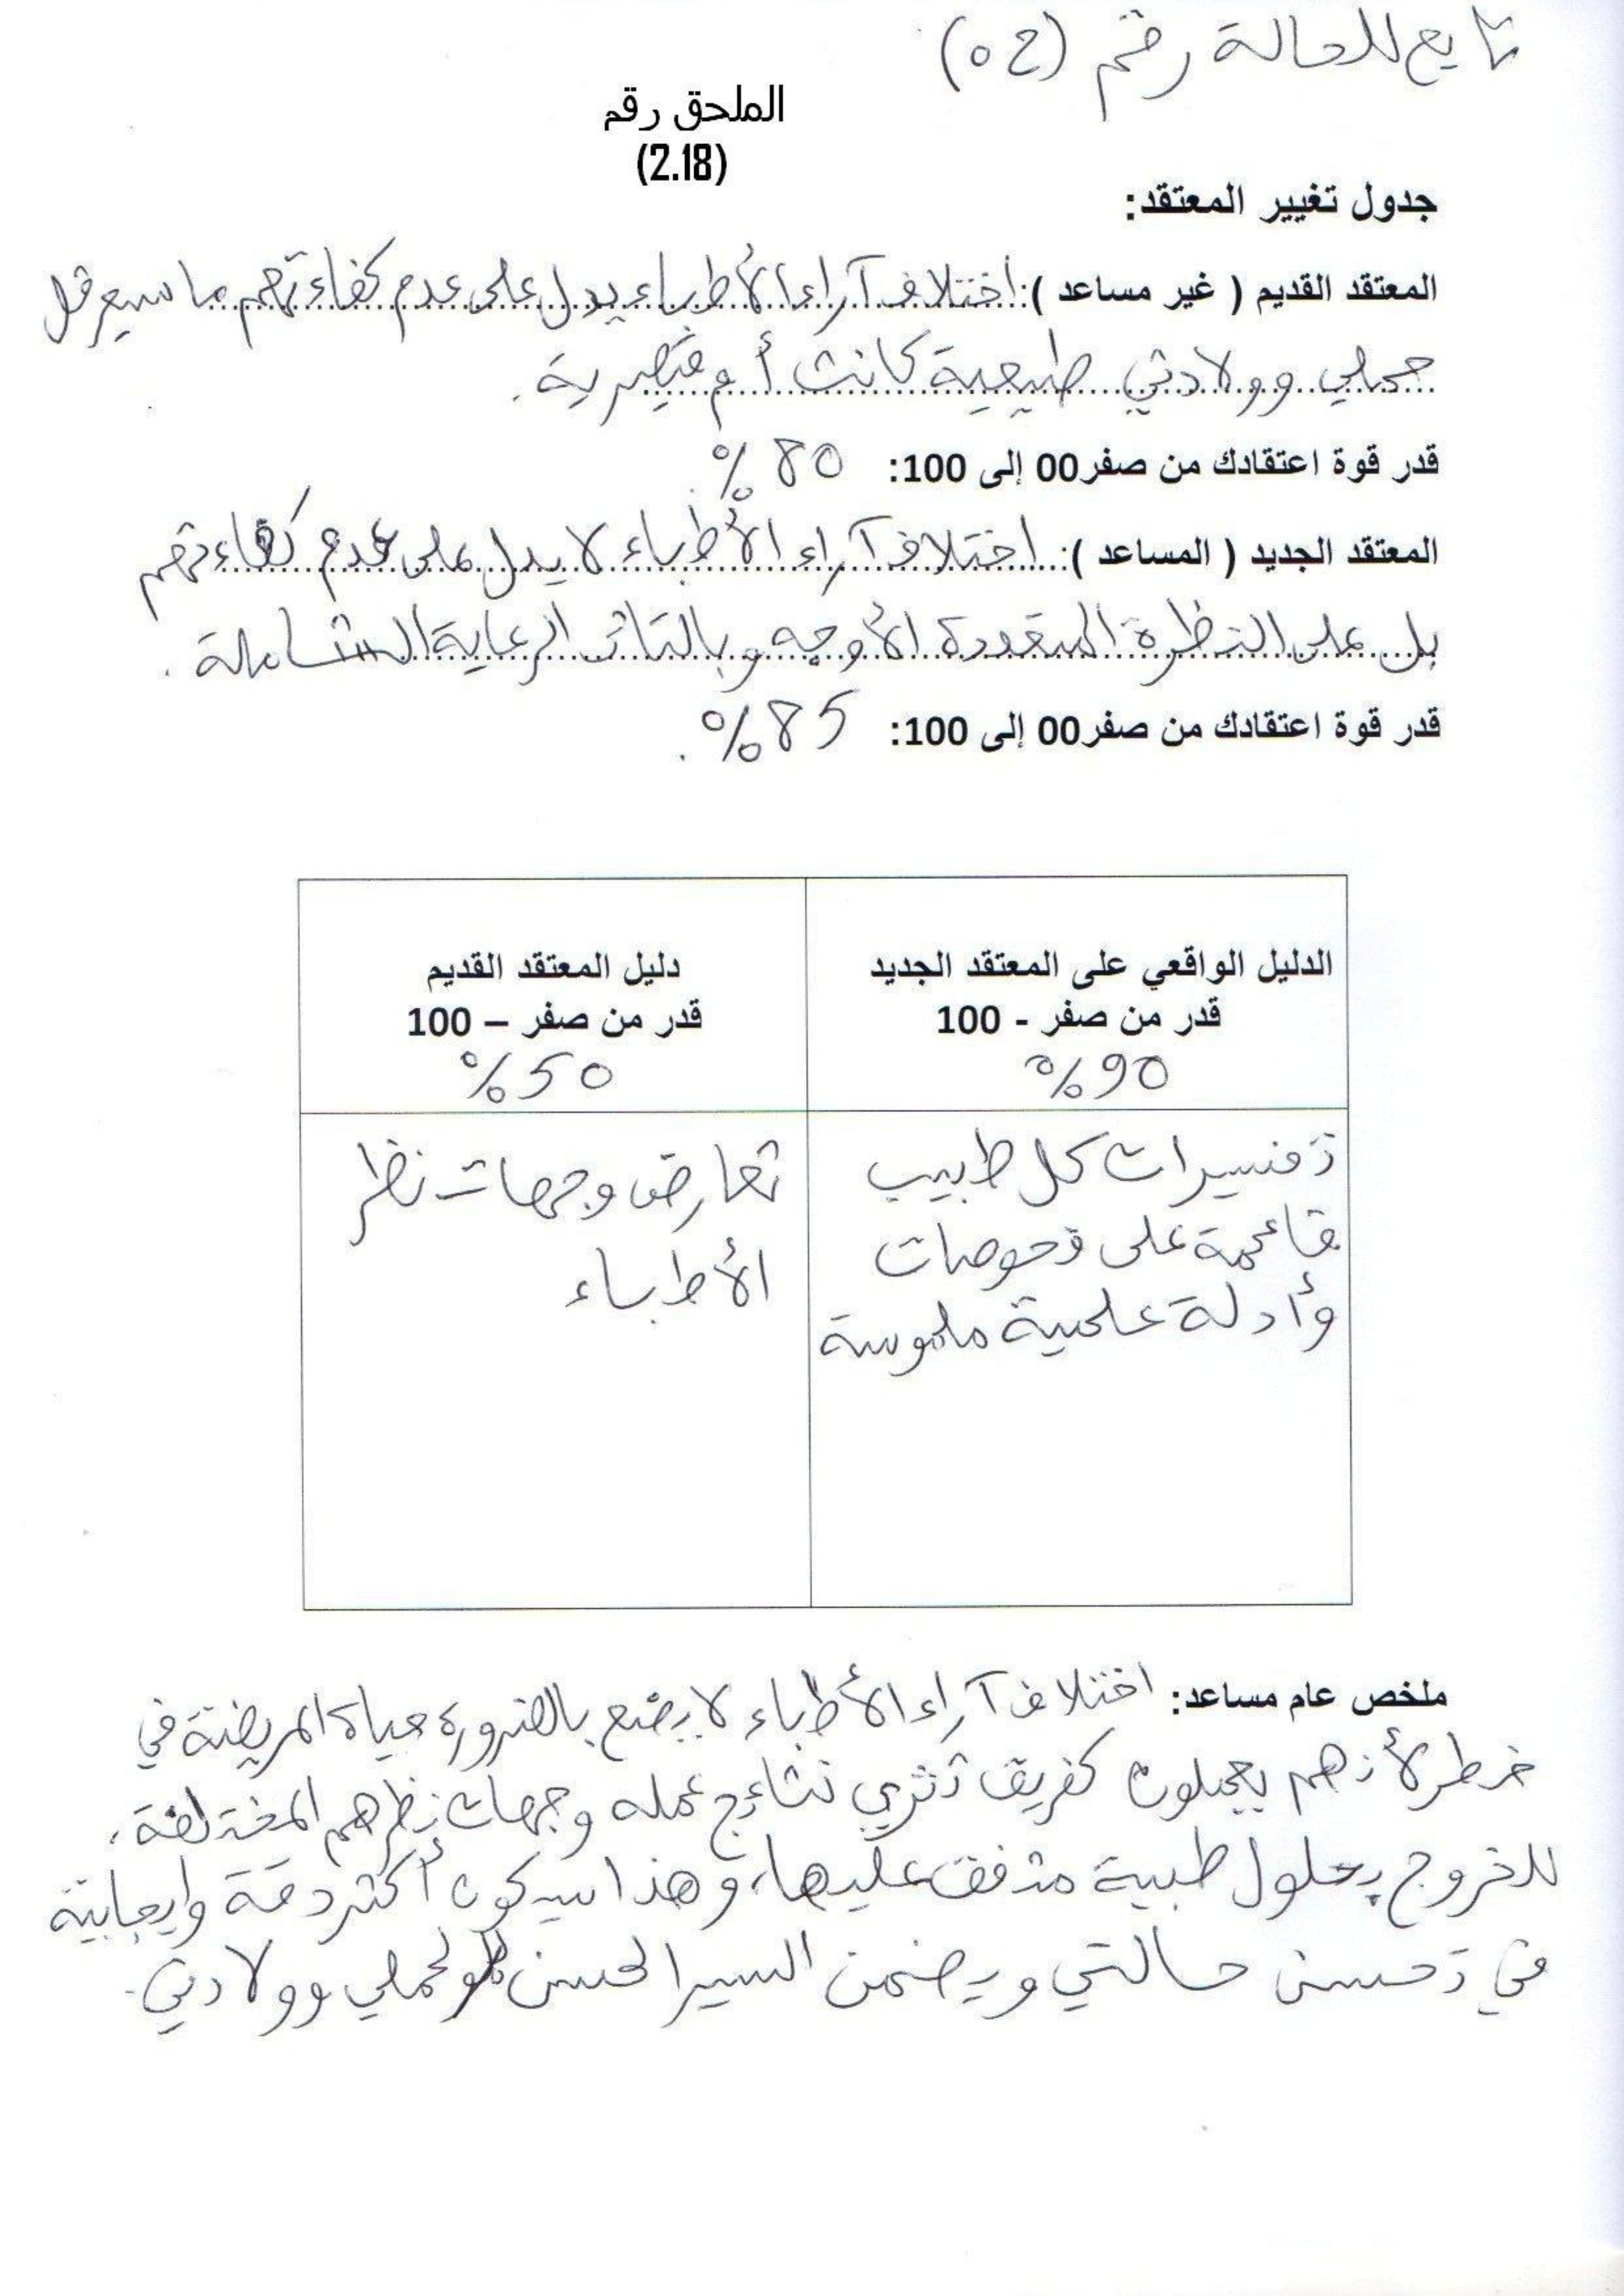 تابع للحالة رقم (ح 5)
الملحق رقم
(2.18)
جدول تغيير المعتقد:
المعتقد القديم ( غير مساعد ): اختلاف آراء الأطباء يدل على عدم كفاءتهم ما سيعرقل
حملي وولادتي طبيعية كانت أم قيصرية.
قدر قوة اعتقادك من صفر00 إلى 100: 80 %.
المعتقد الجديد ( المساعد ): اختلاف آراء الأطباء لا يدل على عدم كفاءتهم
بل على النظرة المتعددة الأوجه وبالتالي الرعاية الشاملة.
قدر قوة اعتقادك من صفر00 إلى 100: 85%.
الدليل الواقعي على المعتقد الجديد
قدر من صفر - 100
90%
تفسيرات كل طبيب
قائمة على فحوصات
وأدلة علمية ملموسة
دليل المعتقد القديم
قدر من صفر – 100
50%
تعارض وجهات نظر
الأطباء
ملخص عام مساعد: اختلاف آراء الأطباء لا يضع بالضرورة حياة المريضة في
خطر لأنهم يعملون كفريق تثري نتائج عمله وجهات نظرهم المختلفة،
للخروج بحلول طبية متفق عليها، وهذا سيكون أكثر دقة وإيجابية
في تحسن حالتي ويضمن السير الحسن لحملي وولادتي.